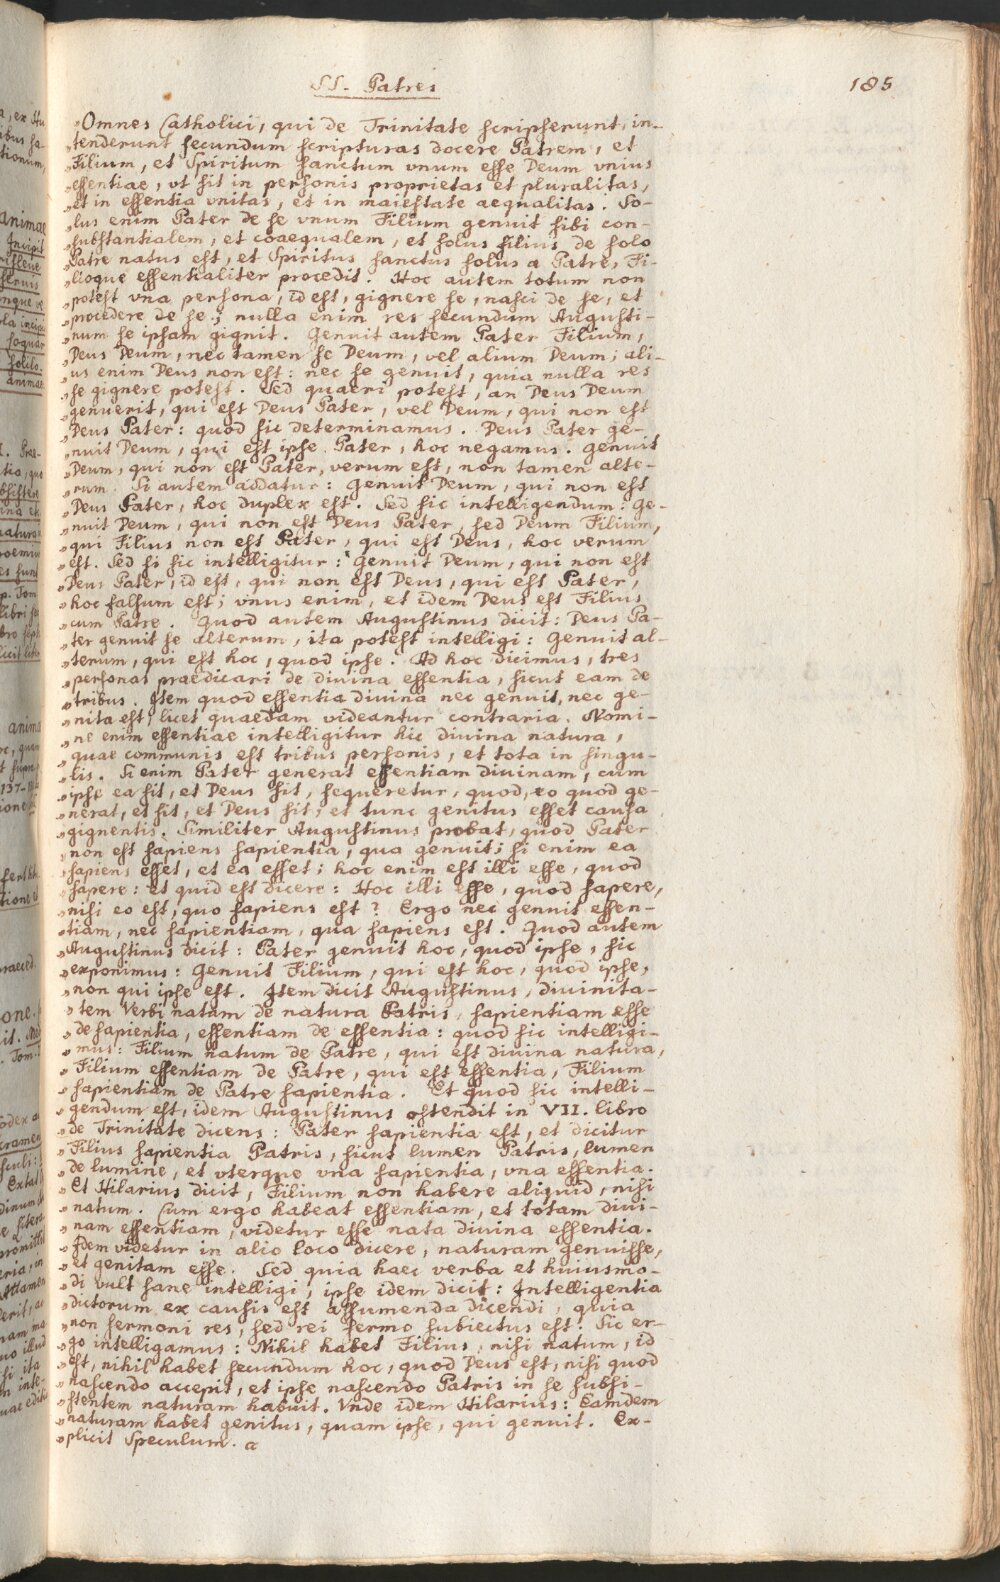 SS. Patres
185
"Omnes Catholici, qui de Trinitate scripserunt, in-
"tenderunt secundum scripturas docere Patrem, et
"Filium, et Spiritum Sanctum vnum esse Deum vnius
"essentiae, vt sit in personis proprietas et pluralitas,
"et in essentia vnitas, et in maiestate aequalitas. So-
"lus enim Pater de se vnum Filium genuit sibi con-
"substantialem, et coaequalem, et solus filius de solo
"Patre natus est, et Spiritus sanctus solus a Patre, Fi-
"lioque essentialiter procedit. Hoc autem totum non
"potest vna persona, id est, gignere se, nasci de se, et
"procedere de se; nulla enim res secundum Augusti-
"num se ipsam gignit. Genuit autem Pater Filium,
"Deus Deum, nec tamen se Deum, vel alium Deum; ali-
"us enim Deus non est: nec se genuit, quia nulla res
"se gignere potest. Sed quaeri potest, an Deus Deum
"genuerit, qui est Deus Pater, vel Deum, qui non est
"Deus Pater: quod sic determinamus. Deus Pater ge-
"nuit Deum, qui est ipse Pater, hoc negamus. Genuit
"Deum, qui non est Pater, verum est, non tamen alte-
"rum. Si autem addatur: Genuit Deum, qui non est
"Deus Pater, hoc duplex est. Sed sic intelligendum: Ge-
"nuit Deum, qui non est Deus Pater, sed Deum Filium,
"qui Filius non est Pater, qui est Deus, hoc verum
"est. Sed si sic intelligitur: Genuit Deum, qui non est
"Deus Pater, id est, qui non est Deus, qui est Pater,
"hoc falsum est; vnus enim, et idem Deus est Filius
"cum Patre. Quod autem Augustinus dicit: Deus Pa-
"ter genuit se alterum, ita potest intelligi: Genuit al-
"terum, qui est hoc, quod ipse. Ad hoc dicimus, tres
"personas praedicari de divina essentia, sicut eam de
"tribus. Item quod essentia divina nec genuit, nec ge-
"nita est, licet quaedam videantur contraria. Nomi-
"ne enim essentiae intelligitur hic divina natura,
"quae communis est tribus personis, et tota in singu-
"lis. Si enim Pater generat essentiam divinam, cum
"ipse ea sit, et Deus sit, sequeretur, quod, eo quod ge-
"nerat, et sit, et Deus sit; et tunc genitus esset causa
"gignentis. Similiter Augustinus probat, quod Pater
"non est sapiens sapientia, qua genuit; si enim ea
"sapiens esset, et ea esset; hoc enim est illi esse, quod
"sapere: et quid est dicere: Hoc illi esse, quod sapere,
"nisi eo est, quo sapiens est? Ergo nec genuit essen-
"tiam, nec sapientiam, qua sapiens est. Quod autem
"Augustinus dicit: Pater genuit hoc, quod ipse, sic
"exponimus: Genuit Filium, qui est hoc, quod ipse,
"non qui ipse est. Item dicit Augustinus, divinita-
"tem Verbi natam de natura Patris, sapientiam esse
"de sapientia, essentiam de essentia: quod sic intelligi-
"mus: Filium natum de Patre, qui est divina natura,
"Filium essentiam de Patre, qui est essentia, Filium
"sapientiam de Patre sapientia. Et quod sic intelli-
"gendum est, idem Augustinus ostendit in VII. libro
"de Trinitate dicens: Pater sapientia est, et dicitur
"Filius sapientia Patris, sicut lumen Patris, lumen
"de lumine, et vterque vna sapientia, vna essentia.
"Et Hilarius dicit, Filium non habere aliquid, nisi
"natum. Cum ergo habeat essentiam, et totam divi-
"nam essentiam, videtur esse nata divina essentia.
"Idem videtur in alio loco dicere, naturam genuisse,
"et genitam esse. Sed quia haec verba et huiusmo-
"di vult sane intelligi, ipse idem dicit: Intelligentia
"dictorum ex causis est assumenda dicendi, quia
"non sermoni res, sed rei sermo subiectus est. Sic er-
"go intelligamus: Nihil habet Filius, nisi natum, id
"est, nihil habet secundum hoc, quod Deus est, nisi quod
"nascendo accepit, et ipse nascendo Patris in se subsi-
"stentem naturam habuit. Vnde idem Hilarius: Eamdem
"naturam habet genitus, quam ipse, qui genuit. Ex-
"plicit Speculum. a